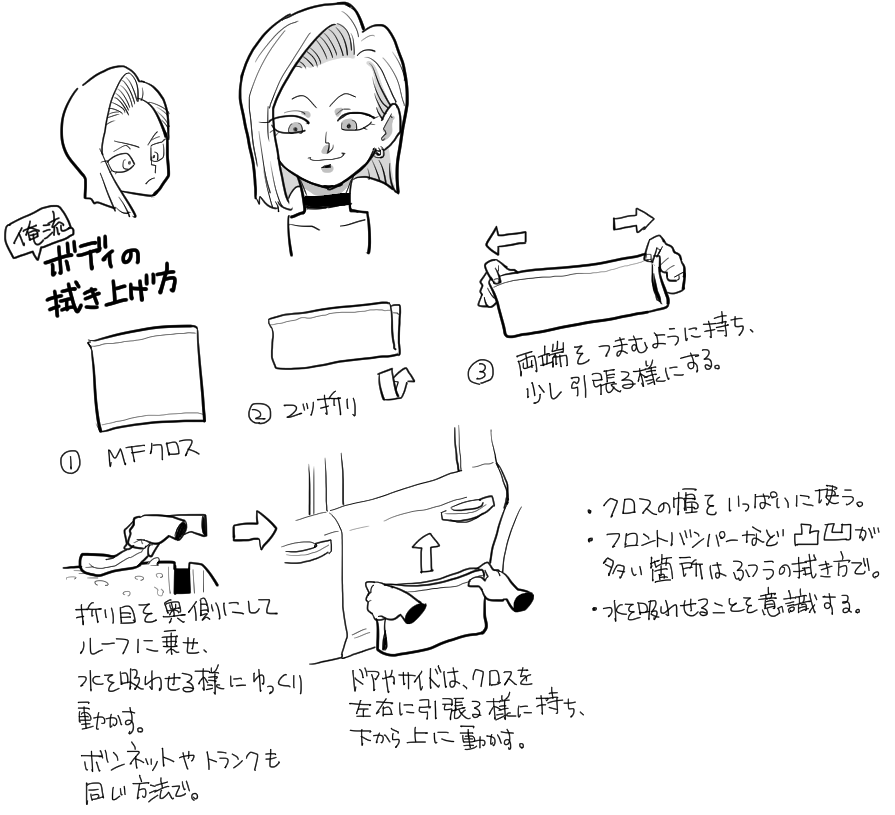 俺流
ボディの
拭き上げ方
① MFクロス
② 2ツ折り
③ 両端をつまむように持ち、
少し引張る様にする。
折り目を奥側にして
ルーフに乗せ、
水を吸わせる様にゆっくり
動かす。
ボンネットやトランクも
同じ方法で。
ドアやサイドは、クロスを
左右に引張る様に持ち、
下から上に動かす。
・クロスの幅をいっぱいに使う。
・フロントバンパーなど凸凹が
多い箇所はふつうの拭き方で。
・水を吸わせることを意識する。